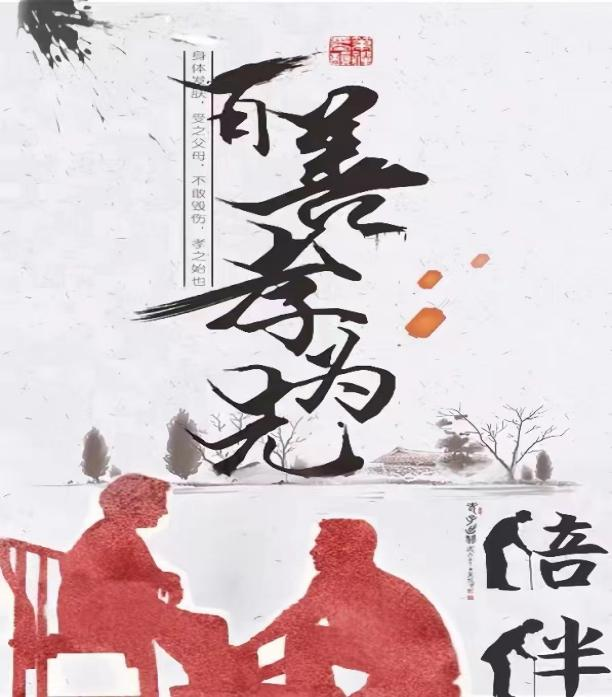 百善孝为先
身体发肤，受之父母，不敢毁伤，孝之始也
陪
伴